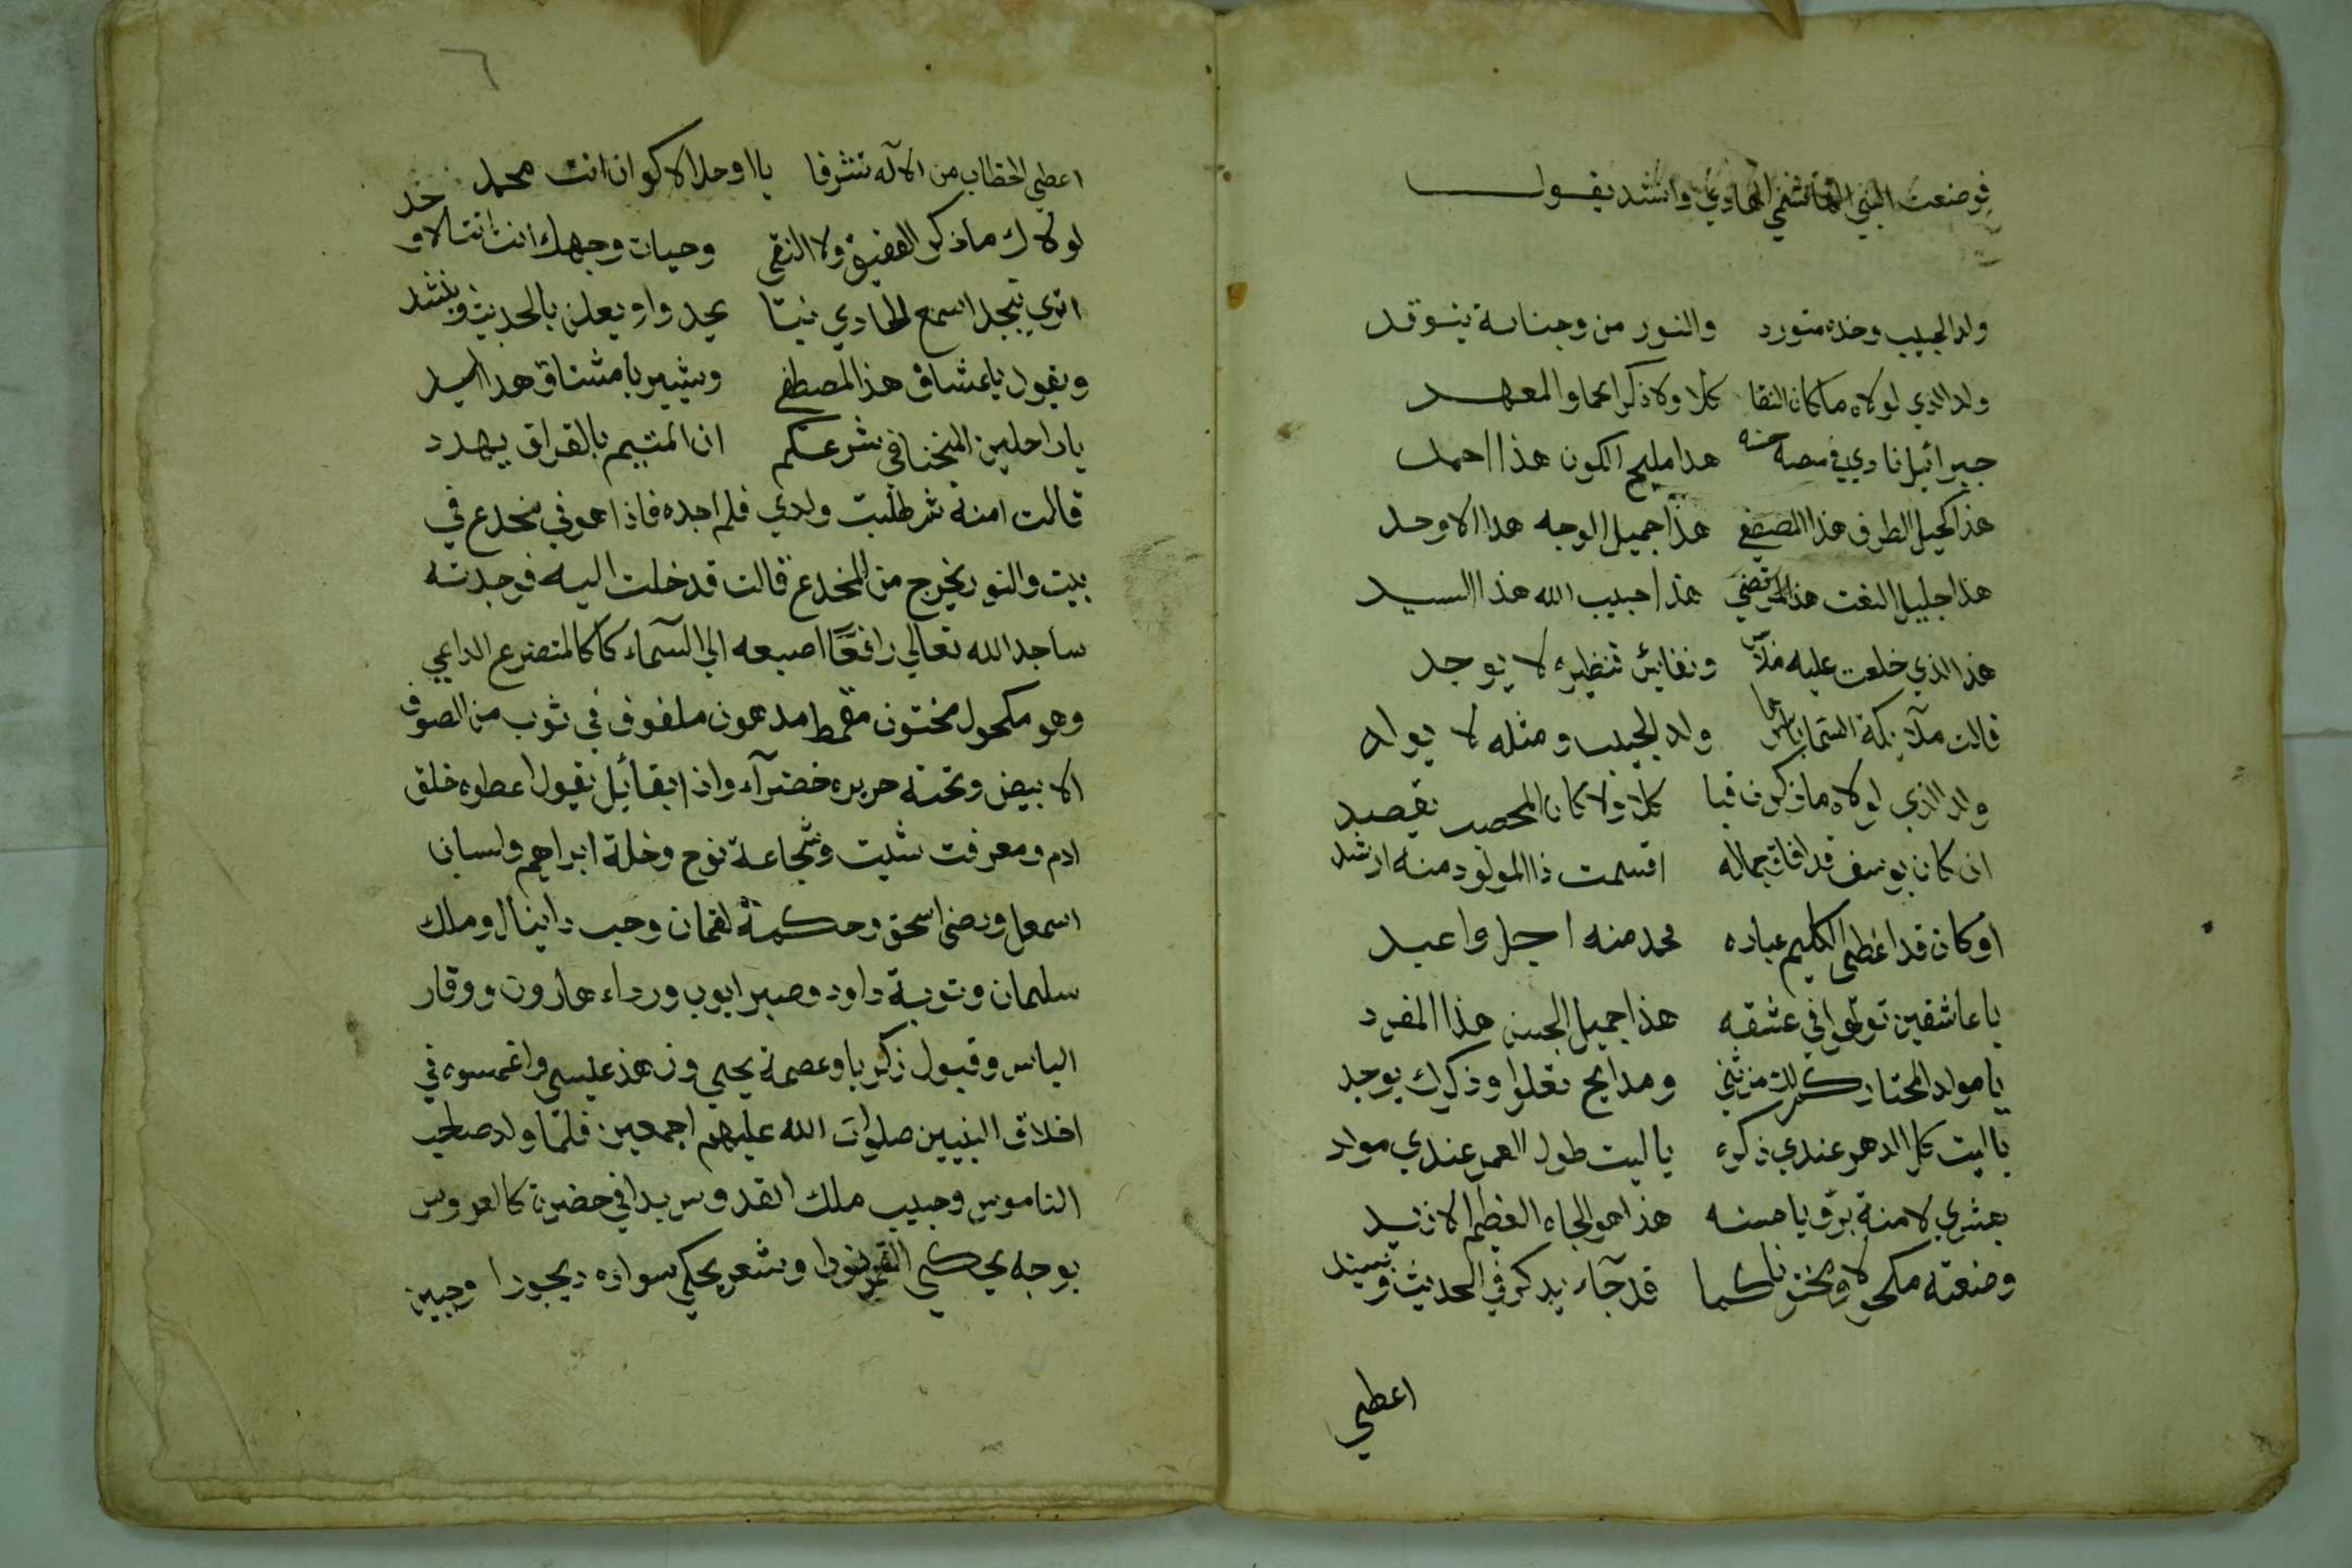 فوضعت النبي الهاشمي الهادي وانشد يقول
ولد الحبيب وخده متورد والنور من وجناته يتوقد
ولد الذي لولاه ما كان النقا كلا ولا ذكر الحما والمعهد
جبرائيل نادي في منصة حسنه هدا مليح الكون هذا احمد
هذا كحيل الطرف هذا المصطفي هذا جميل الوجه هدا الاوحد
هذا جليل النعت هذا المرتضي هذا حبيب الله هذا السيد
هذا الذي خلعت عليه ملابس ونفايس فنظيره لا يوجد
قالت ملآيكة السما باسرها ولد الحبيب ومثله لا يولد
ولد الذي لولاه ما ذكرت قبا كلا ولا كان المحصب يقصد
ان كان يوسف قد افاق بجماله اقسمت ذا المولود منه ارشد
او كان قد اعطي الكليم عباده محمد منه اجل واعبد
يا عاشقين تولهوا في عشقه هذا جميل الحسن هذا المفرد
يا مولد المختار كم لك من ثني ومدايح تعلوا وذكرك يوجد
يا ليت كل الدهر عندي ذكره يا ليت طول العمر عندي مولد
بعشري لامنة برؤيا حسنه هذا هو الجاه العظيم الازيد
وضعته مكحولا ومختونا كما قد جآء يدكر في الحديث ويسند
اعطي
٦
اعطي الخطاب من الآله تشرفا يا اوحد الاكوان انت محمد
لولاك ما ذكر العقيق ولا النقي وحيات وجهك انت انت الاوحد
اتري بنجد اسمع الحادي بنا يحدوا ويعلن بالحديث وينشد
ويقول يا عشاق هذا المصطفي ويشير يا مشتاق هدا السيد
يا راحلين المنحنا في شرعكم ان المتيم بالفراق يهدد
قالت امنة ثم طلبت ولدي فلم اجده فاذا هو في مخدع في
بيت والنور يخرج من المخدع قالت قد خلت اليه فوجدته
ساجد الله تعالي رافعًا اصبعه الي السماء كا كالمتضرع الداعي
وهو مكحول مختون مقمط مدهون ملفوف في ثوب من الصوف
الابيض وتحته حريره خضرآء واذا بقائيل يقول اعطوه خلق
ادم ومعرفت شيت وشجاعة نوح وخلة ابراهيم ولسان
اسمعل ورضي اسحق وحكمة لقمان وحب دانيال وملك
سليمان وتوبة داود وصبر ايوب ورداء هارون ووقار
الياس وقبول زكريا وعصمة يحيي وزهذ عيسي واغمسوه في
اخلاق النبيين صلوات الله عليهم اجمعين فلمّا ولد صاحب
الناموس وحبيب ملك القدوس بدا في حضرة كالعروس
بوجه يحكي القمر نورا وشعر يحكي سواده ديجورا وجبين